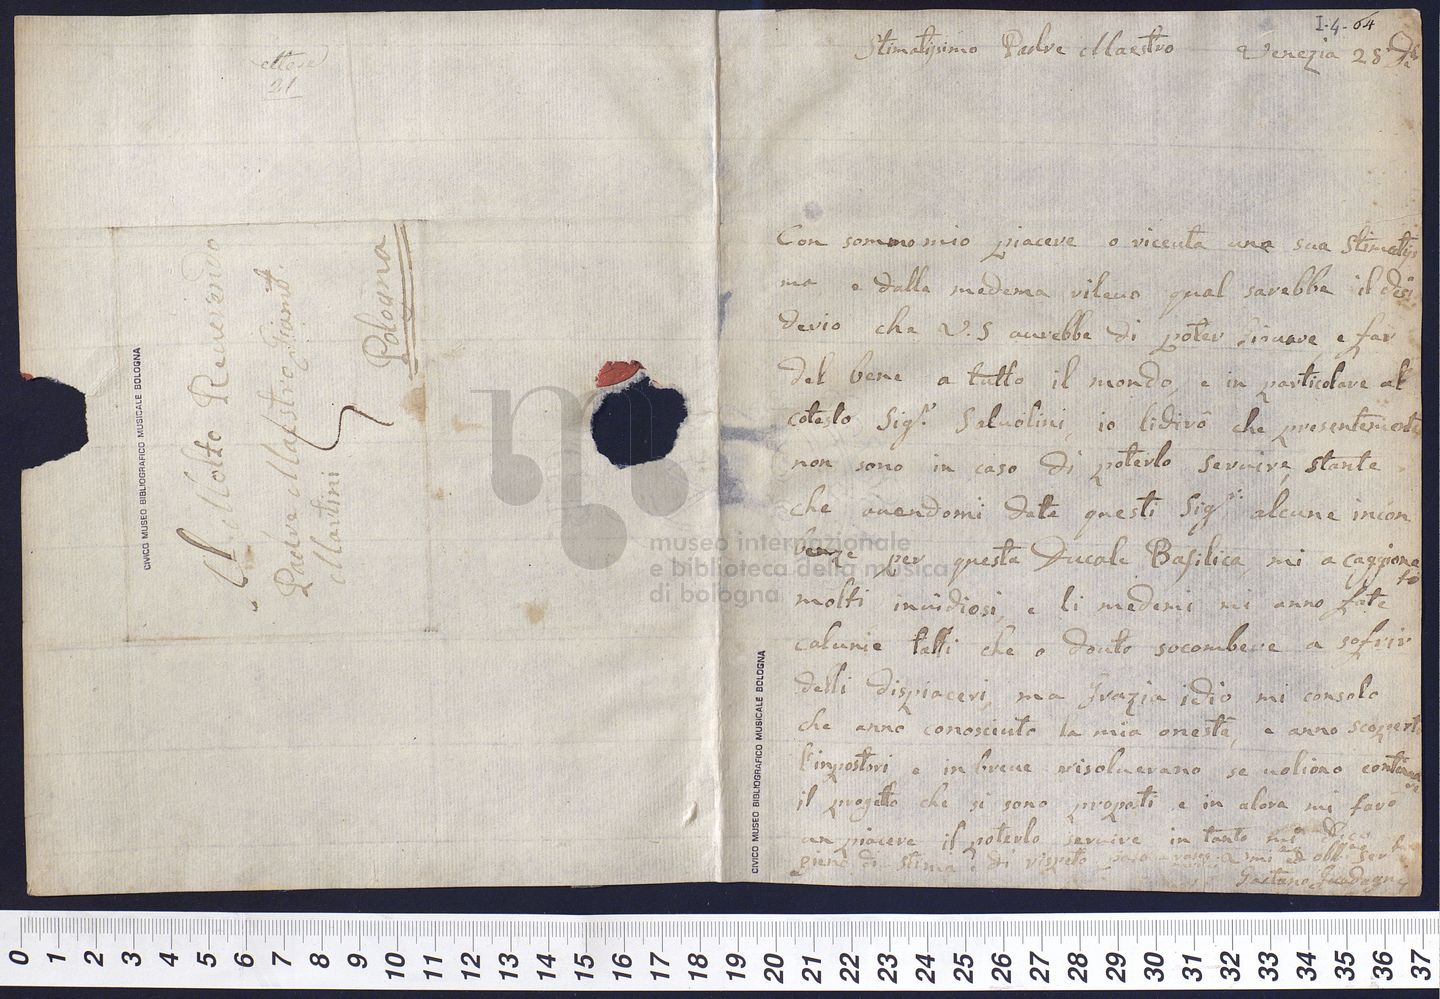 21
Al Molto Reverendo
Padre Maestro Giamb.
Martini
Bologna
CIVICO MUSEO BIBLIOGRAFICO MUSICALE BOLOGNA
I-4-64
Stimatissimo Padre Maestro Venezia 28
Con sommo mio piacere o riceuta una sua Stimatiss
ma e dalla medema rileuo qual sarebbe il desi
derio che V.S aurebbe di poter Giouare e far
del bene a tutto il mondo, e in particolare al
cotesto Sig.r Saluolini, io lidirò che presentemente
non sono in caso di poterlo seruire, stante
che auendomi date questi Sig.ri alcune incon
benze per questa Ducale Basilica, mi a caggiona
to
molti inuidiosi, e li medemi mi anno fate
calunie talli che o douto socombere a sofrir
delli dispiaceri, ma Grazia idio mi consolo
che anno conosciuto la mia onestà, e anno scoperti
l'inpostori e in breue risoluerano se uoliono continua
re
il progetto che si sono propati e in alora mi farò
un piacere il poterlo seruire in tanto mi dico
pieno di stima e di rispetto
Gaetano Guadagni
CIVICO MUSEO BIBLIOGRAFICO MUSICALE BOLOGNA
museo internazionale
e biblioteca della musica
di bologna
0 1 2 3 4 5 6 7 8 9 10 11 12 13 14 15 16 17 18 19 20 21 22 23 24 25 26 27 28 29 30 31 32 33 34 35 36 37